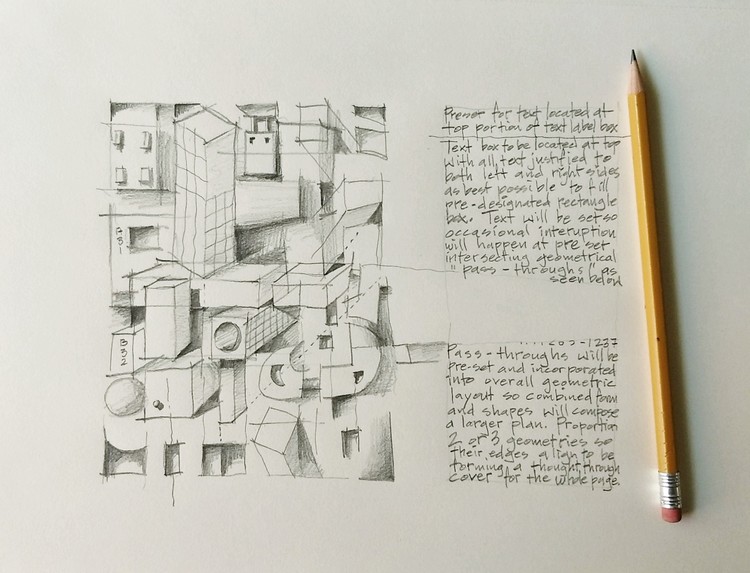 Preset for text located at
top portion of text label box
Text box to be located at top
with all text justified to
both left and right sides
as best possible to fill
pre-designated rectangle
box. Text will be set so
occasional interuption
will happen at pre set
intersecting geometrical
"pass-throughs" as
seen below
-1237
Pass-throughs will be
pre-set and incorporated
into overall geometric
layout so combined form
and shapes will compose
a larger plan. Proportion
2 or 3 geometries so
their edges align to be
forming a thought through
cover for the whole page.
B31
B32